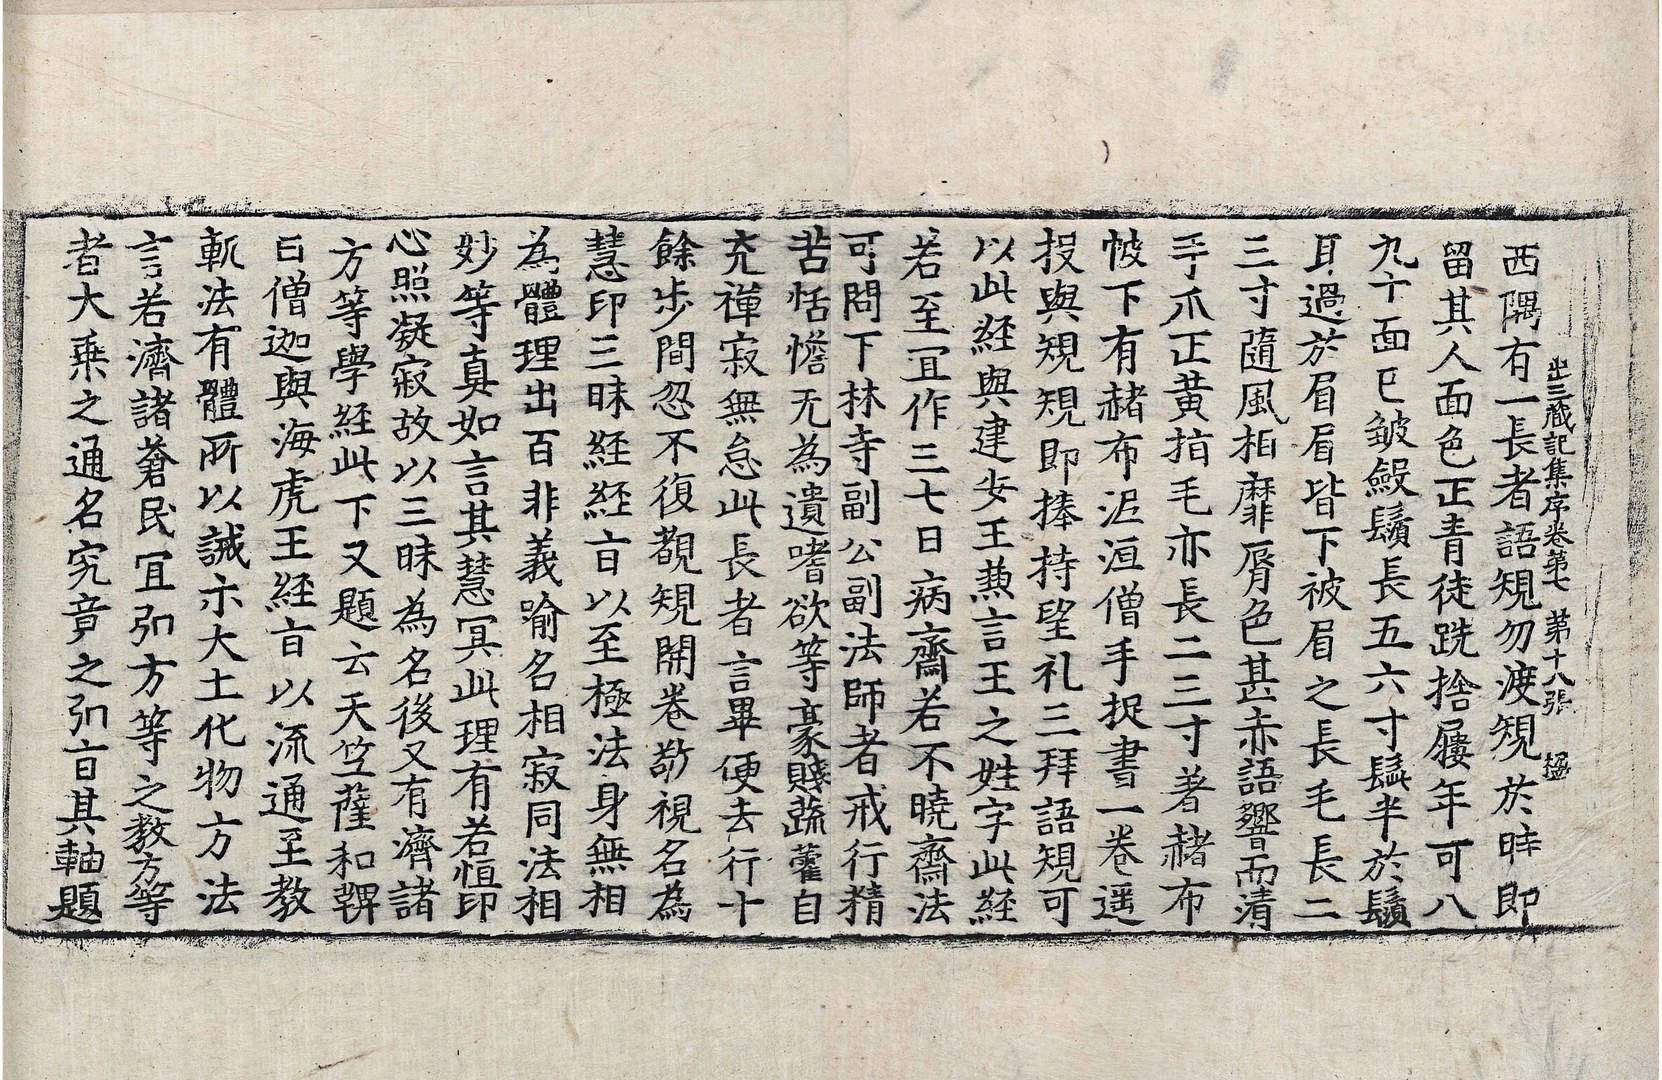 出三藏記集序卷第七　第十八張　極
西隅有一長者語規勿渡規於時即
留其人面色正青徒跣捨屨年可八
九十面已皺鍛鬚長五六寸鬢半於鬚
耳過於眉眉皆下被眉之長毛長二
三寸隨風相靡脣色甚赤語響而清
手爪正黃指毛亦長二三寸著赭布
帔下有赭布泥洹僧手捉書一卷遥
投與規規即捧持望礼三拜語規可
以此經與建安王兼言王之姓字此經
若至冝作三七日病齋若不曉齋法
可問下林寺副公副法師者戒行精
苦恬憺无為遺嗜欲等豪賤蔬藿自
充禪寂無怠此長者言畢便去行十
餘步間忽不復覩規開卷敬視名為
慧印三昧經經㫖以至極法身無相
為體理出百非義喻名相寂同法相
妙等真如言其慧冥此理有若恒印
心照凝寂故以三昧為名後又有濟諸
方等學經此下又題云天竺薩和鞞
曰僧迦與海虎王經㫖以流通至教
軌法有體所以誡示大士化物方法
言若濟諸蒼民冝弘方等之教方等
者大乘之通名究竟之弘㫖其軸題